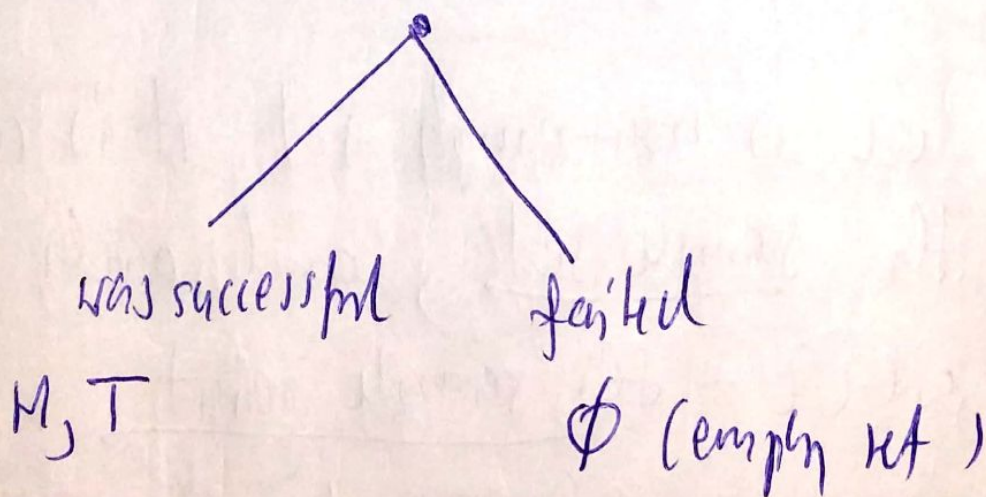 was successful failed
H, T ∅ (empty set)